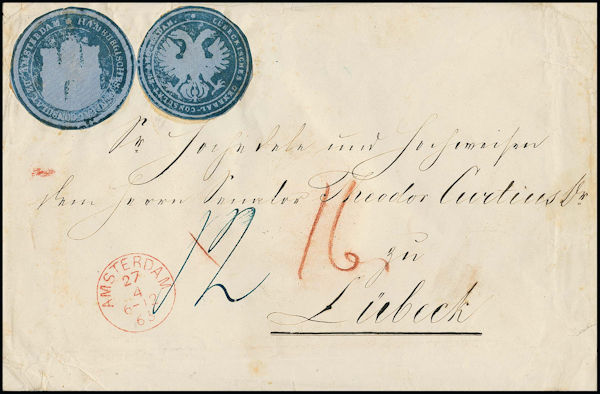 HAMBURGISCHES GENERAL-CONSULAT IN AMSTERDAM
LÜBECKISCHES GENERAL-CONSULAT IN AMSTERDAM
Sr Hochedele und Hochweisen
dem Herrn Senator Theodor Curtius Dr
zu
Lübeck
12
16
AMSTERDAM
27
4
6-12
63